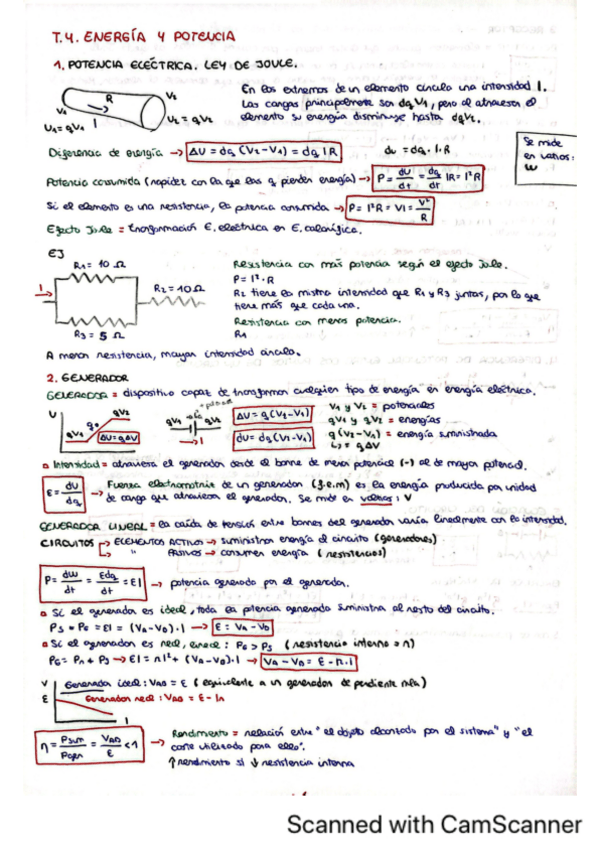 T.4. ENERGÍA Y POTENCIA
1. POTENCIA ELÉCTRICA. LEY DE JOULE.
En los extremos de un elemento circula una intensidad I.
Las cargas principalmente son dq V1, pero al atravesar el
elemento su energía disminuye hasta dqV2.
R
V2
V1
I
U1 = qV1
U2 = qV2
Diferencia de energía → ΔU = dq (V2 - V1) = dq I R
du = dq · I · R
Se mide
en vatios:
W
Potencia consumida (rapidez con la que las q pierden energía) → P = dU/dt = dq/dt IR = I²R
Si el elemento es una resistencia, la potencia consumida → P = I²R = VI = V²/R
Efecto Joule = transformación E. eléctrica en E. calorífica.
EJ
R1 = 10 Ω
I
R2 = 10 Ω
R3 = 5 Ω
Resistencia con más potencia según el efecto Joule.
P = I² · R
R2 tiene la misma intensidad que R1 y R3 juntas, por lo que
tiene más que cada una.
Resistencia con menos potencia.
R1
A menor resistencia, mayor intensidad circula.
2. GENERADOR
GENERADOR = dispositivo capaz de transformar cualquier tipo de energía en energía eléctrica.
U
qV2
q
qV1
ΔU = qΔV
qV1
qV2
I
ΔU = q(V2 - V1)
dU = dq(V2 - V1)
V1 y V2 = potenciales
qV1 y qV2 = energías
q(V2 - V1) = energía suministrada
↳ = qΔV
Intensidad = atraviesa el generador desde el borne de menor potencial (-) al de mayor potencial.
ε = dU/dq → Fuerza electromotriz de un generador (f.e.m) es la energía producida por unidad
de carga que atraviesa el generador. Se mide en voltios: V
GENERADOR LINEAL = la caída de tensión entre bornes del generador varía linealmente con la intensidad.
CIRCUITOS → ELEMENTOS ACTIVOS → suministran energía al circuito (generadores)
↳ " PASIVOS → consumen energía (resistencias)
P = dW/dt = εdq/dt = εI → potencia generada por el generador.
Si el generador es ideal, toda la potencia generada suministra al resto del circuito.
PS = PG = εI = (VA - VB) · I → ε = VA - VB
Si el generador es real, : PG > PS (resistencia interna = r)
PG = Pr + PS → εI = rI² + (VA - VB) · I → VA - VB = ε - r · I
V
ε
Generador ideal: VAB = ε (equivalente a un generador de pendiente nula)
Generador real: VAB = ε - Ir
I
η = Psum/Pgen = VAB/ε < 1 → Rendimiento = relación entre "el objeto alcanzado por el sistema" y "el
coste utilizado para ello".
↑ rendimiento si ↓ resistencia interna
Scanned with CamScanner